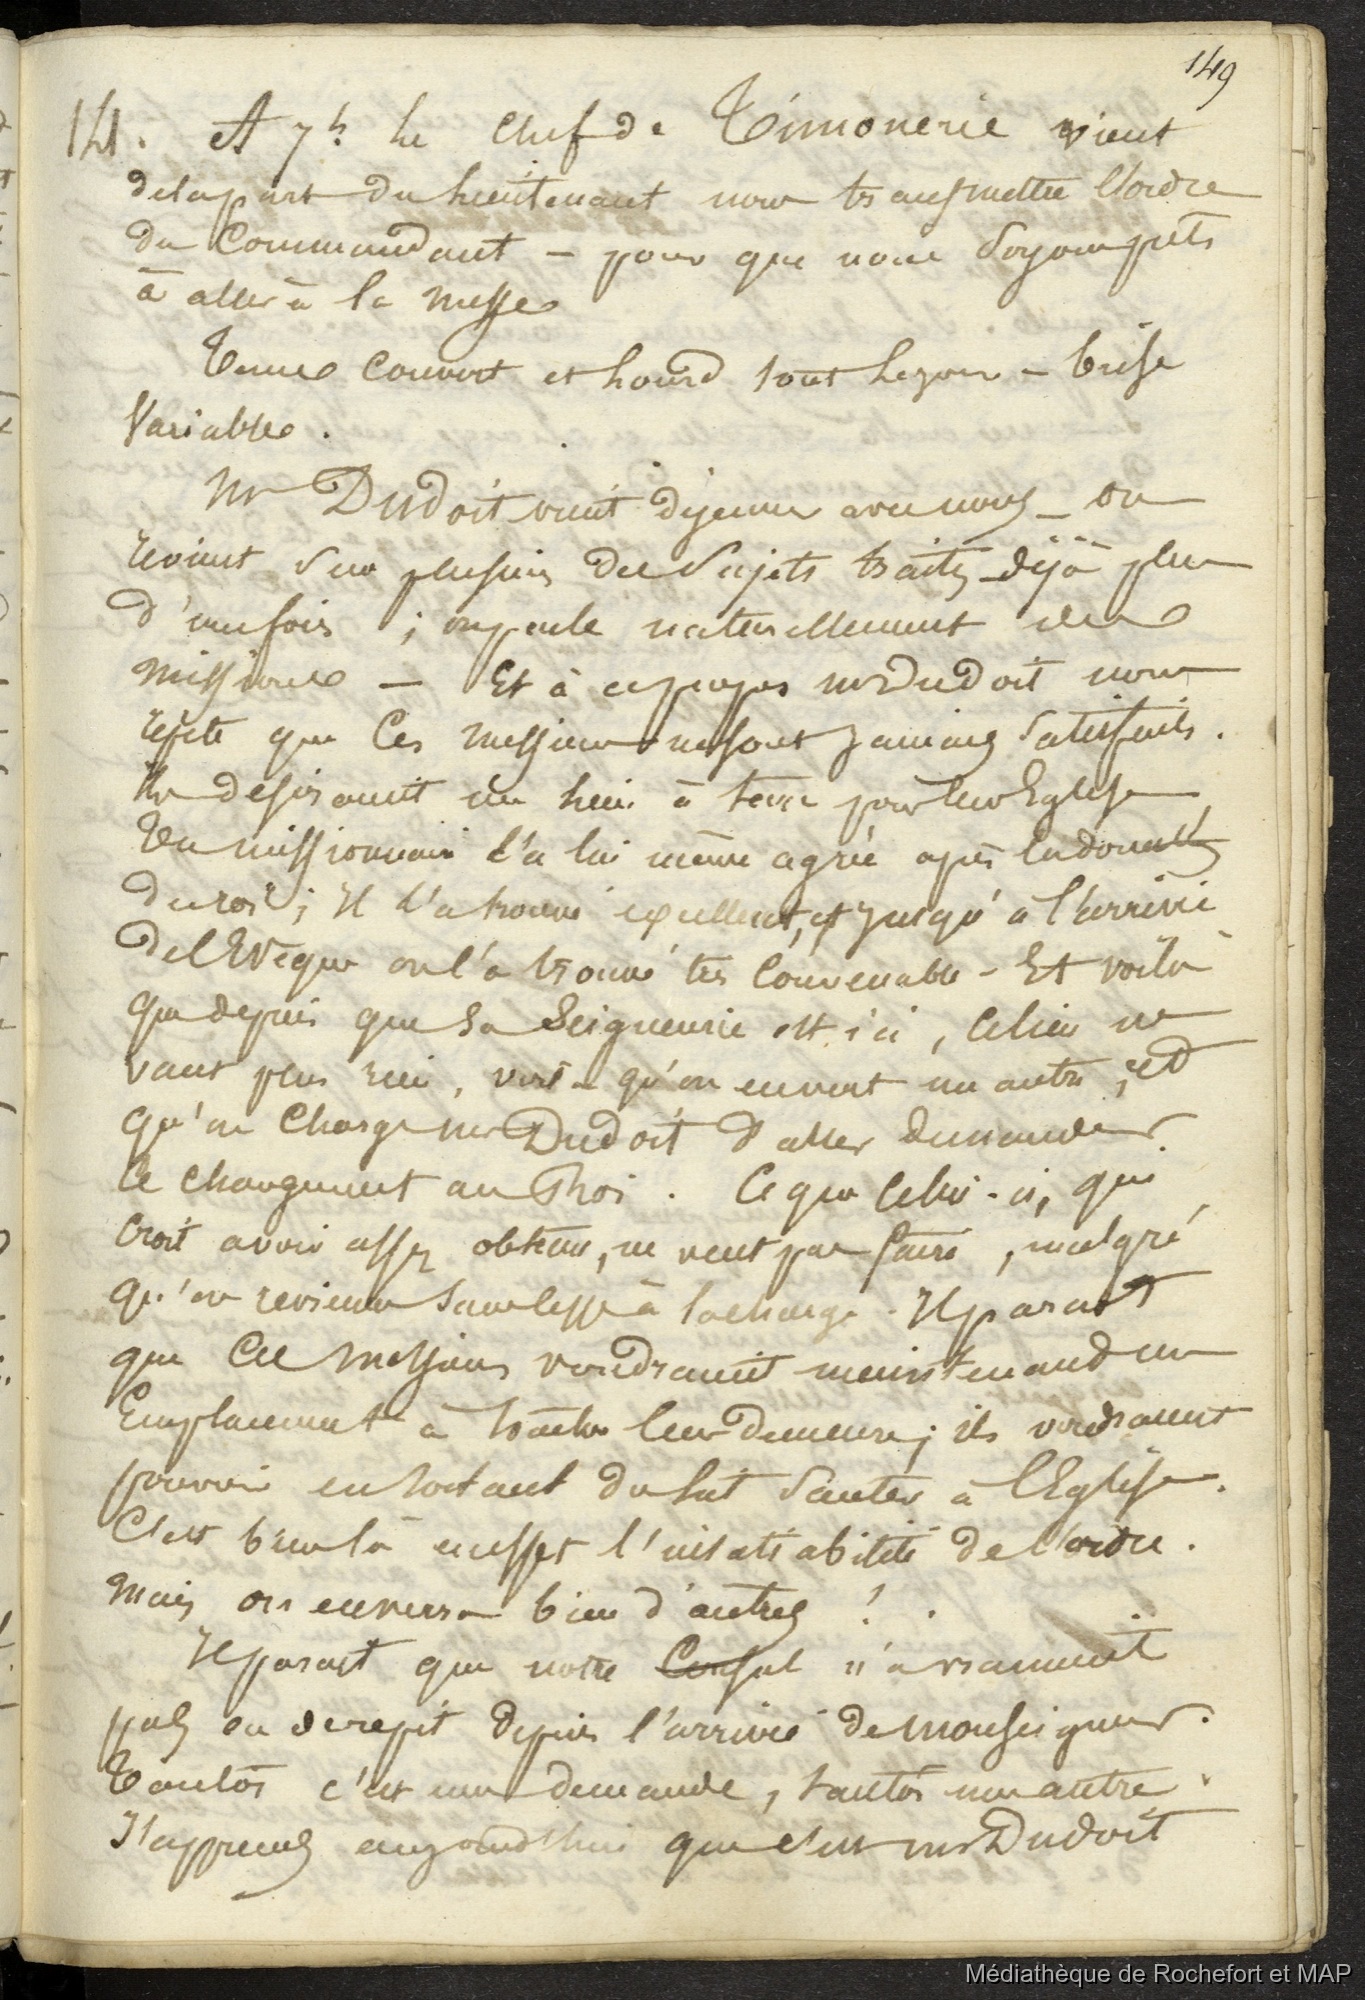 149
14. A 7h le chef de Timonerie vient
delapart du lieutenant nous transmettre l'ordre
du Commandant – pour que nous soyons prêts
à aller à la messe
Tems couvert et lourd tout lejour – brise
Variable.
Mr Dudoit vient déjeuner avec nous – on
revient sur plusieurs des sujets traités déjà plus
d'unefois ; onparle naturellement des
missions – Et à cepropos mr Dudoit nous
répète que ces messieurs nesont jamais satisfaits.
Ils desiraient un lieu à terre pour leur Eglise
Un missionnaire l'a lui même agréé après
duroi ; Il l'a trouvé excellent, et jusqu'à l'arrivée
del'Evêque on l'a trouvé très convenable – Et voila
que depuis que Sa Seigneurie est ici, celieu ne
vaut plus rien, qu'on enveut un autre, et
qu'on charge mr Dudoit d'aller demander
ce changement au Roi. Ceque celui-ci, qui
croit avoir assez obtenu, ne veut pas faire, malgré
qu'on revienne sanscesse à lacharge. Ilparait
que ces messieurs voudraient maintenand un
Emplacement à toucher leur demeure ; ils voudraient
pouvoir ensortant du lit sauter à l'Eglise.
C'est bien là eneffet l'insatiabilité de l'ordre.
Mais on enverra bien d'autres !
Ilparait que notre Consul n'a vraiment
pas eu derepit depuis l'arrivée de monseigneur.
Tantôs c'est une demande, tantôs une autre.
J'apprends aujourd'hui que c'est mr Dudoit
Médiathèque de Rochefort et MAP